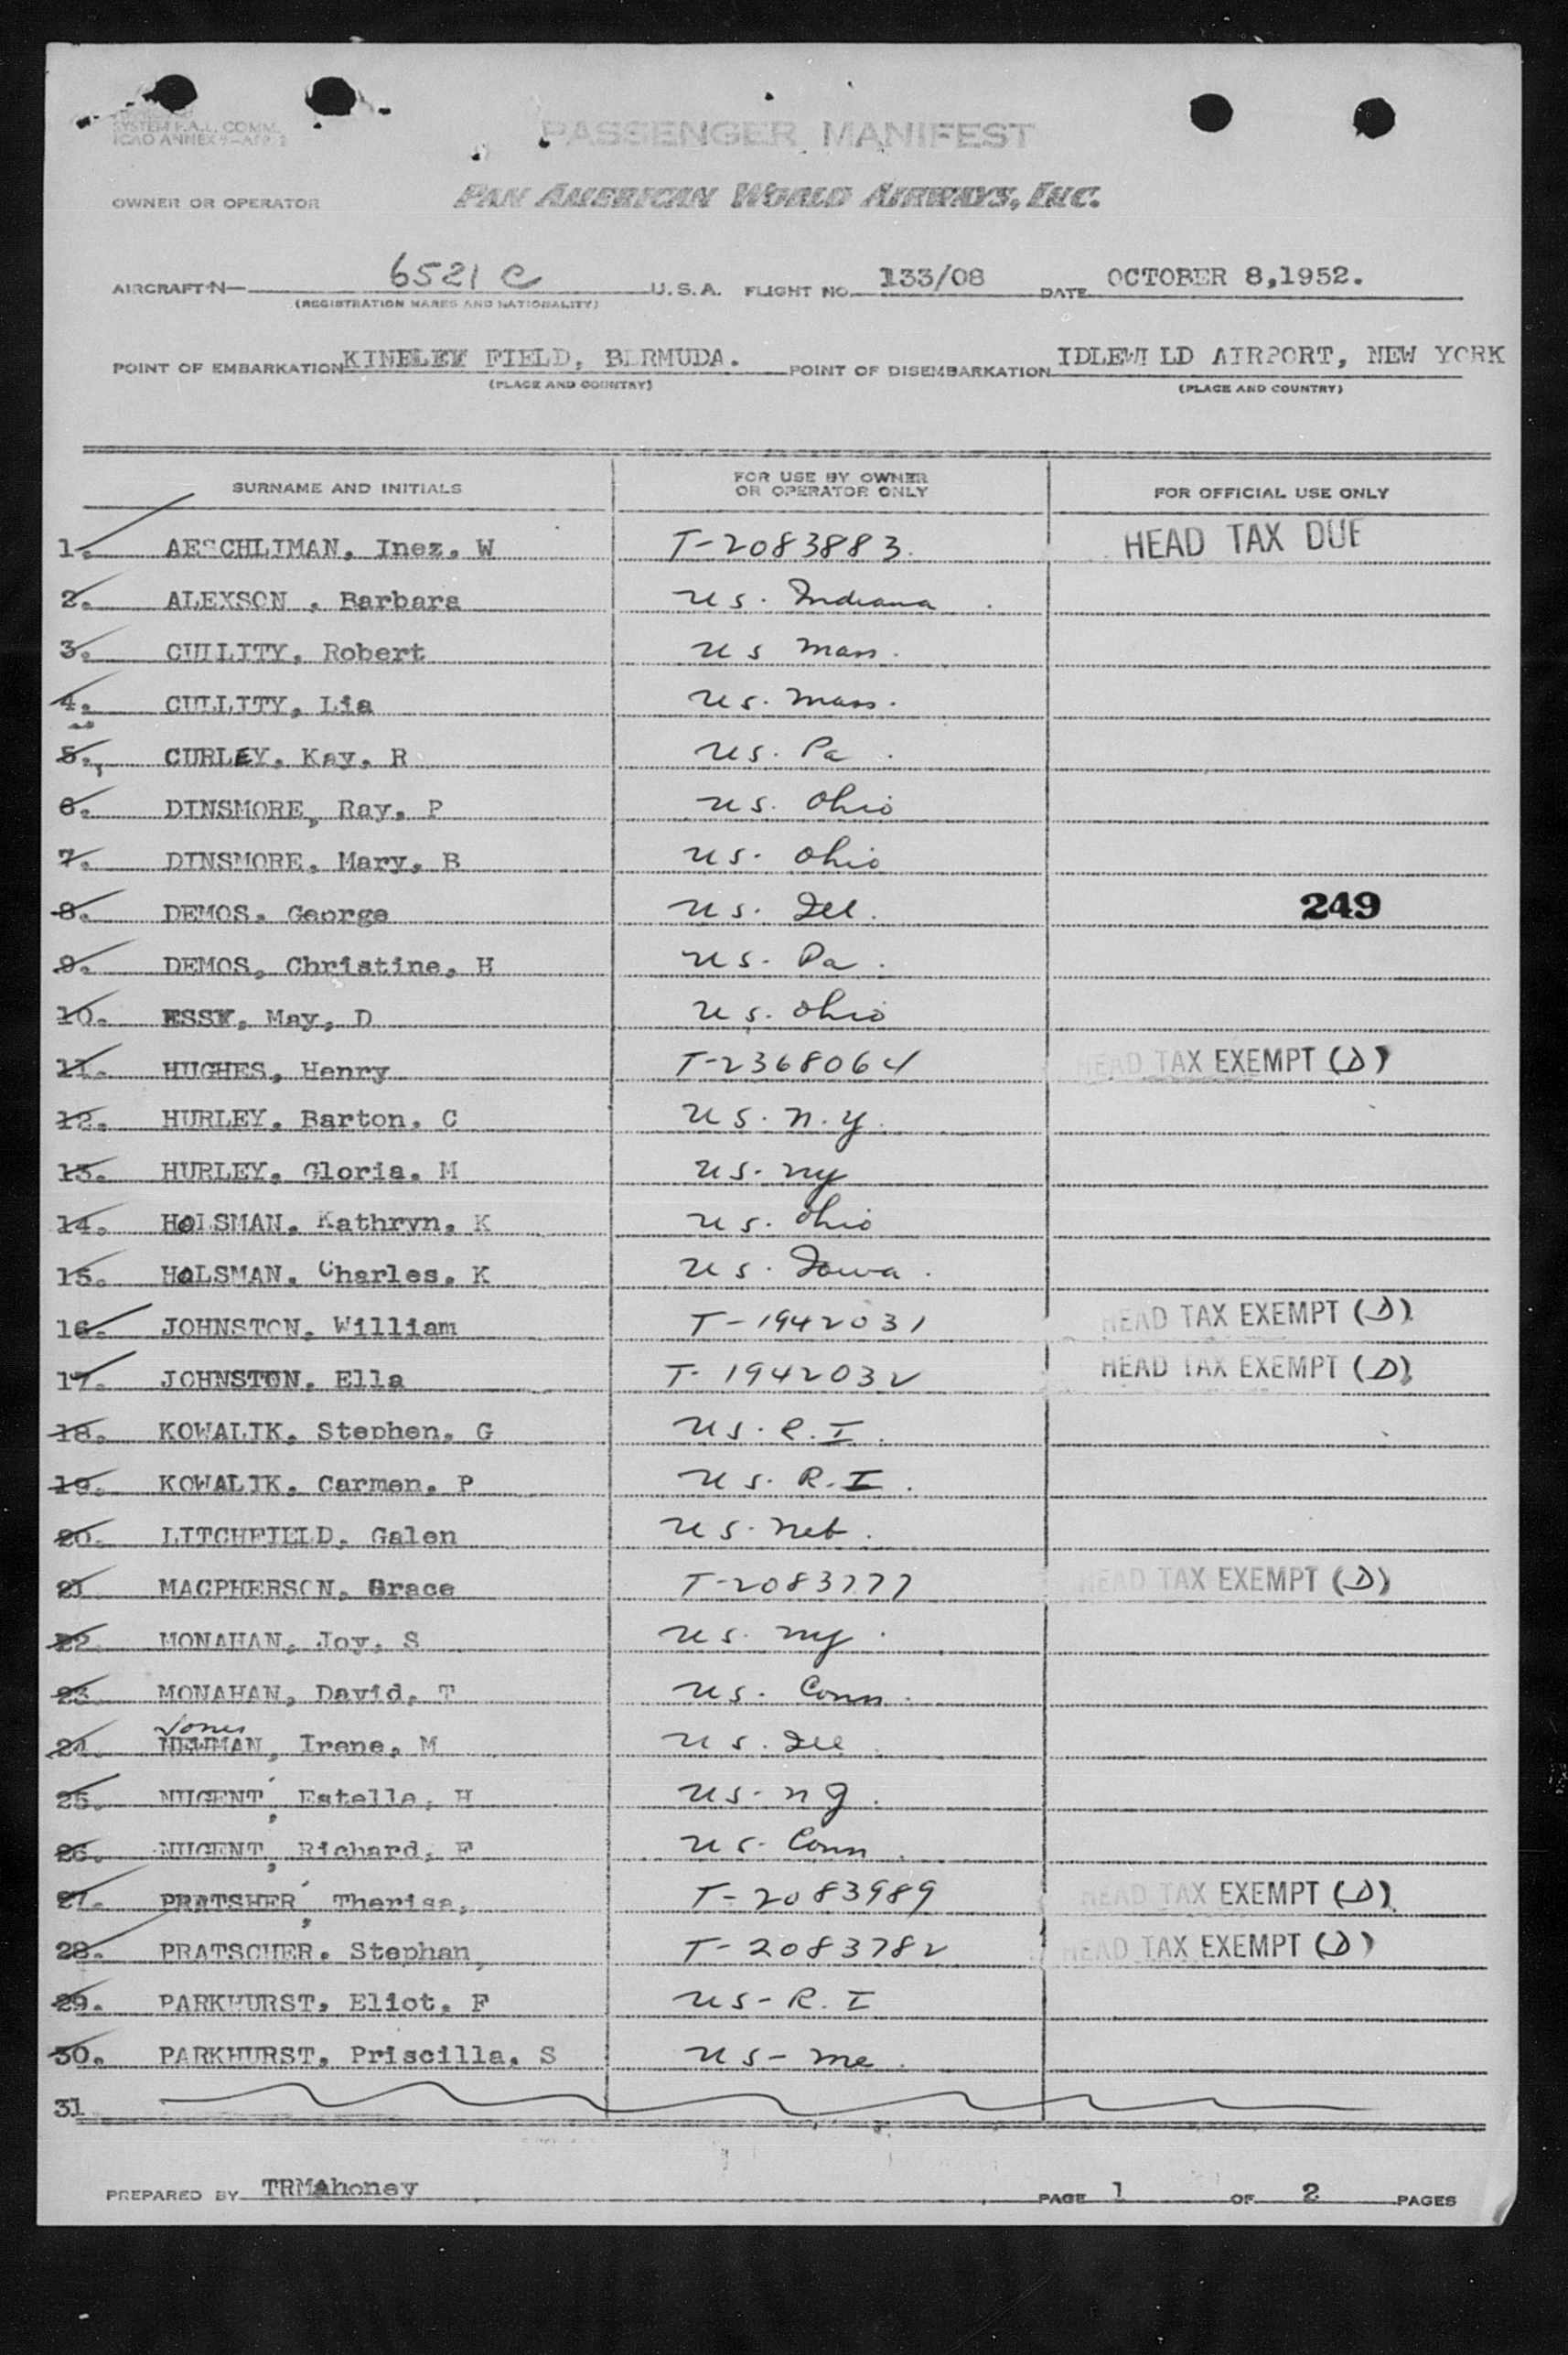 SYSTEM F.A.L. COMM.
ICAO ANNEX 9-APP. 2
PASSENGER MANIFEST
OWNER OR OPERATOR PAN AMERICAN WORLD AIRWAYS, INC.
AIRCRAFT N- 6521 C U.S.A. FLIGHT NO. 133/08 DATE OCTOBER 8,1952.
(REGISTRATION MARKS AND NATIONALITY)
POINT OF EMBARKATION KINDLEY FIELD, BERMUDA. POINT OF DISEMBARKATION IDLEWILD AIRPORT, NEW YORK
(PLACE AND COUNTRY) (PLACE AND COUNTRY)
SURNAME AND INITIALS FOR USE BY OWNER OR OPERATOR ONLY FOR OFFICIAL USE ONLY
1. AESCHLIMAN, Inez, W T-2083883. HEAD TAX DUE
2. ALEXSON , Barbara US. Indiana.
3. CULLITY, Robert US Mass.
4. CULLITY, Lia US. Mass.
5. CURLEY, Kay, R US. Pa.
6. DINSMORE, Ray, P US. Ohio
7. DINSMORE, Mary, B US. Ohio
8. DEMOS, George US. Del. 249
9. DEMOS, Christine, H US. Pa.
10. ESSY, May, D US. Ohio
11. HUGHES, Henry T-2368064 HEAD TAX EXEMPT (D)
12. HURLEY, Barton, C US. N.Y.
13. HURLEY, Gloria, M US. NY
14. HOLSMAN, Kathryn, K US. Ohio
15. HOLSMAN, Charles, K US. Iowa.
16. JOHNSTON, William T-1942031 HEAD TAX EXEMPT (D)
17. JOHNSTON, Ella T-1942032 HEAD TAX EXEMPT (D)
18. KOWALIK, Stephen, G US. R.I.
19. KOWALIK, Carmen, P US. R.I.
20. LITCHFIELD, Galen US. Neb.
21 MACPHERSON, Grace T-2083777 HEAD TAX EXEMPT (D)
22. MONAHAN, Joy, S US. NY.
23 MONAHAN, David, T US. Conn.
Jones
24. NEWMAN, Irene, M US. Ill.
25. NUGENT, Estelle, H US. NJ.
26. NUGENT, Richard, F US. Conn.
27. PRATSHER, Therisa, T-2083989 HEAD TAX EXEMPT (D)
28. PRATSCHER, Stephan, T-2083782 HEAD TAX EXEMPT (D)
29. PARKHURST, Eliot, F US-R.I
30. PARKHURST, Priscilla, S US-Me.
31
PREPARED BY TRMahoney PAGE 1 OF 2 PAGES